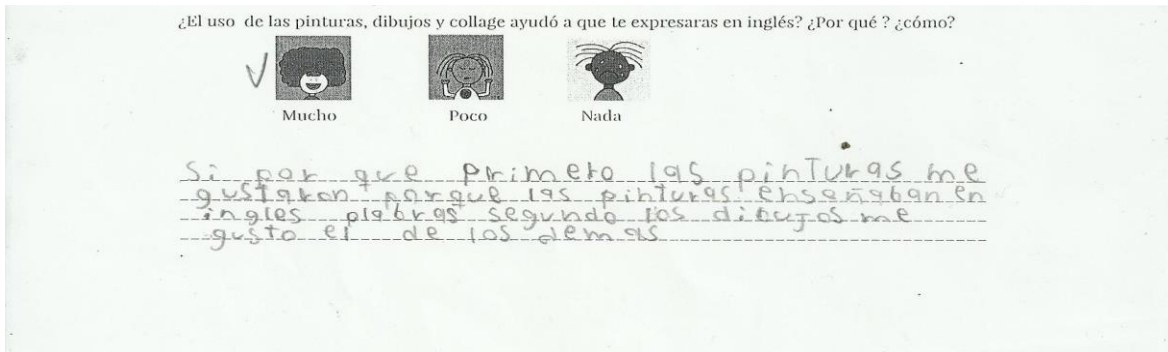 ¿El uso de las pinturas, dibujos y collage ayudó a que te expresaras en inglés? ¿Por qué ? ¿cómo?
Mucho Poco Nada
Si por que primero las pinturas me
gustaron porque las pinturas enseñaban en
ingles plabras segundo los dibujos me
gusto el de los demas